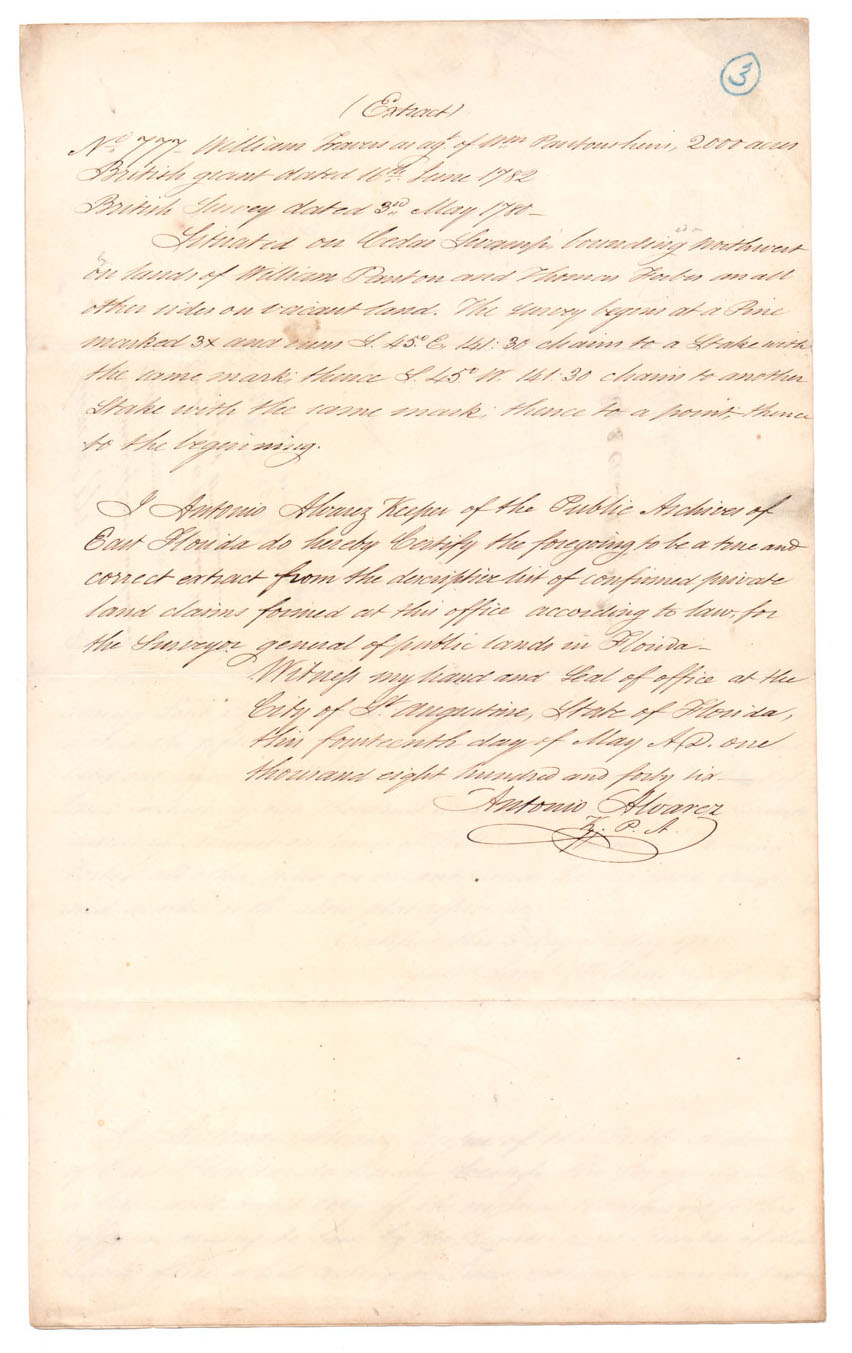 3
(Extract)
No. 777 William Travers as agt. of Wm Pantons heirs, 2000 acres
British grant dated 16th June 1782
British Survey dated 3rd May 1780_
Situated on Cedar Swamp, bounding northwest
on lands of William Panton and Thomas Forbes on all
other sides on vacant land. The survey begins at a Pine
marked 3x and runs S. 45° E. 141:30 chains to a Stake with
the same mark; thence S. 45° W. 141:30 chains to another
Stake with the same mark; thence to a point; thence
to the beginning.
I Antonio Alvarez Keeper of the Public Archives of
East Florida do hereby Certify the foregoing to be a true and
correct extract from the descriptive list of confirmed private
land claims formed at this office according to law, for
the Surveyor general of public lands in Florida_
Witness my hand and Seal of office at the
City of St. Augustine, State of Florida,
this fourteenth day of May A.D. one
thousand eight hundred and forty six_
Antonio Alvarez
K. P. A.